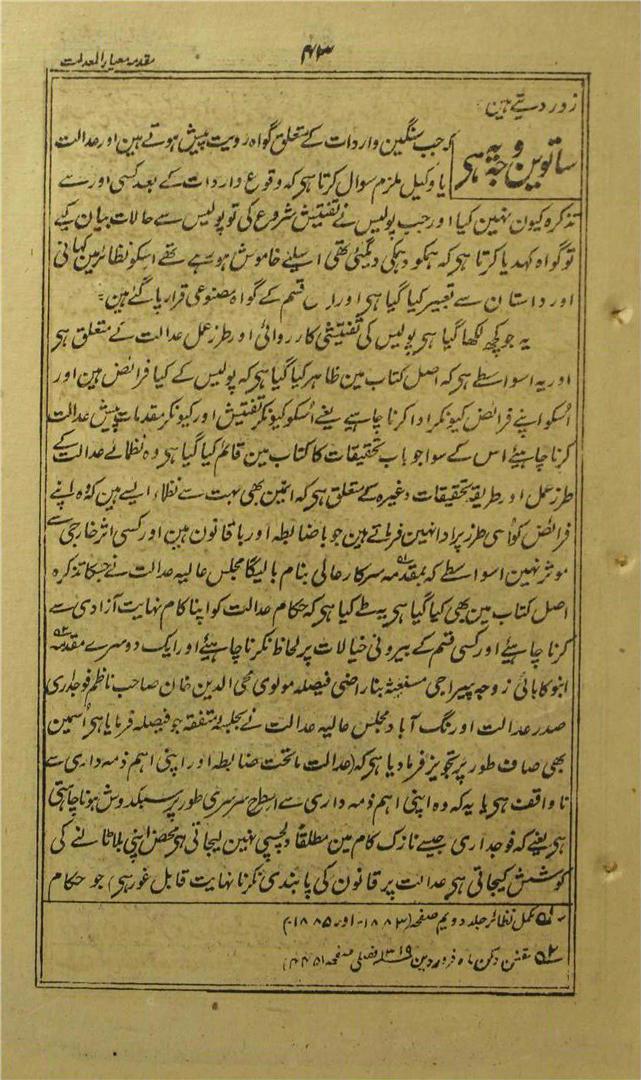 ۴۳
مقدمہ معیار المعدلت
زور دیتے ہین
ساتوین وجہ یہ ہی
کہ جب سنگین واردات کے متعلق گواہ رویت پیش ہوتے ہین اور عدالت
یا وکیل ملزم سوال کرتا ہی کہ وقوع واردات کے بعد کسی اور سے
تذکرہ کیون نہین کیا اور جب پولیس نے تفتیش شروع کی تو پولیس سے حالات بیان کیے
تو گواہ کہدیا کرتا ہی کہ ہمکو دہمکی دیگئی تھی اسلیئے خاموش ہو رہے تھے اسکو نظائر مین کہانی
اور داستان سے تعبیر کیا گیا ہی اور اس قسم کے گواہ مصنوعی قرار پا گئے ہین
یہ جو کچھ لکھا گیا ہی پولیس کی تفتیشی کارروائی اور طرز عمل عدالت کے متعلق ہی
اور یہ اسواسطے ہی کہ اصل کتاب مین ظاہر کیا گیا ہی کہ پولیس کے کیا فرائض ہین اور
اُسکو اپنے فرائض کیونکر ادا کرنا چاہیے یعنے اُسکو کیونکر تفتیش اور کیونکر مقدمات پیش عدالت
کرنا چاہیئے اس کے سوا جو باب تحقیقات کا کتاب مین قائم کیا گیا ہی وہ نظائے عدالت کے
طرز عمل اور طریقہ تحقیقات وغیرہ کے متعلق ہی کہ انمین بھی بہت سے نظاء ایسے ہین کہ وہ اپنے
فرائض کو اُسی طرز پر ادا نہین فرماتے ہین جو باضابطہ اور با قانون ہین اور کسی اثر خارجی سے
موثر نہین اسواسطے کہ بمقدمہ ۵۱ سرکار عالی بنام بالیگا مجلس عالیہ عدالت نے جسکا تذکرہ
اصل کتاب مین بھی کیا گیا ہی یہ طے کیا ہی کہ حکام عدالت کو اپنا کام نہایت آزادی سے
کرنا چاہیئے اور کسی قسم کے بیرونی خیالات پر لحاظ نکرنا چاہیئے اور ایک دوسرے مقدمہ ۵۲
انبو کا بائی زوجہ پیراجی مستغیثہ بناراضی فیصلہ مولوی محی الدین خان صاحب ناظم فوجداری
صدر عدالت اورنگ آباد مجلس عالیہ عدالت نے بجلسہ متفقہ جو فیصلہ فرمایا ہی اُسمین
بھی صاف طور پر تجویز فرما دیا ہی کہ (عدالت ماتحت ضابطہ اور اپنی اہم ذمہ داری سے
ناواقف ہی یا یہ کہ وہ اپنی اہم ذمہ داری سے اسطرح سرسری طور پر سبکدوش ہونا چاہتی
ہی یعنے کہ فوجداری جیسے نازک کام مین مطلقاً دلچسپی نہین لیجاتی ہی محض اپنی بلا ٹالنے کی
کوشش کیجاتی ہی عدالت پر قانون کی پابندی نکرنا نہایت قابل غور ہی) جو حکام
۵۱ مکمل نظائر جلد دویم صفحہ (۱۸۸۳- اور ۱۸۸۵-)
۵۲ مقنن دکن ماہ فروردین ۱۳۱۹ فصلی صفحہ (۴۴۵)